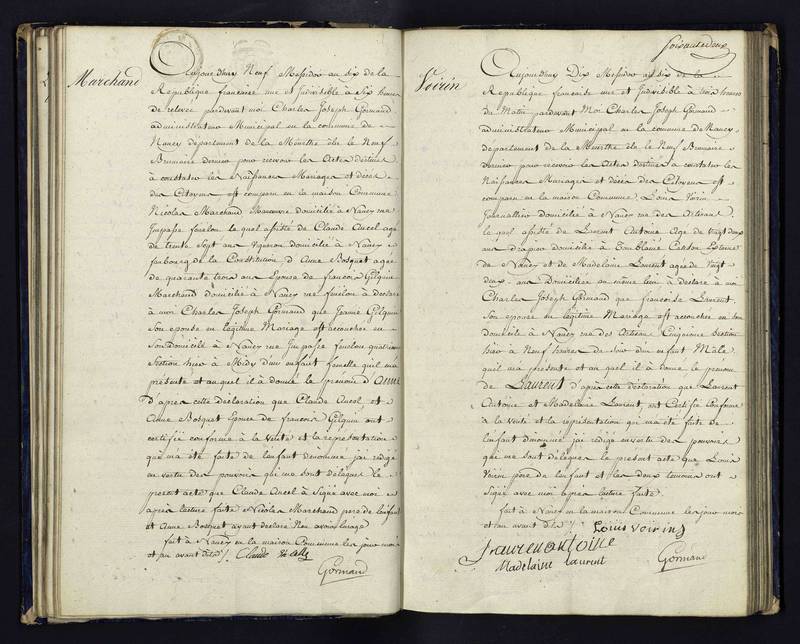 Marchand
Aujourd'huy Neuf Messidor an six de la
République française une et Indivisible à Six heures
de relevée pardevant moi Charles Joseph Gormand
administrateur Municipal en la commune de
Nancy département de la Meurthe élu le Neuf
Brumaire dernier pour recevoir les Actes destinés
à constater les Naissances Mariages et décès
des Citoyens est comparu en la maison Commune
Nicolas Marchand Manoeuvre domicilié à Nancy rue
Impasse fenelon lequel assisté de Claude Aucel agé
de trente Sept ans Vigneron domicilié à Nancy
faubourg de la Constitution d'Anne Bosquet agée
de quarante trois ans Epouse de francois Gelquin
Marchand domicilié à Nancy rue fenélon à déclaré
à moi Charles Joseph Gormand que Jeanne Gelquin
Son epouse en légitime Mariage est accouchée en
Son domicile à Nancy rue Impasse fenelon quatrieme
Section hier à Midy d'un enfant femelle quil m'a
présenté et auquel il à donné le prenom d'Anne
D'après cette déclaration que Claude Aucel et
Anne Bosquet Epouse de francois Gelquin ont
certifiée conforme à la verité et la représentation
qui m'a été faite de l'enfant dénommé j'ai rédigé
en vertu des pouvoirs qui me sont délégués le
présent acte que Claude Aucel à Signé avec moi
après lecture faite Nicolas Marchand pere de l'enfant
et Anne Bosquet ayant déclaré Ne savoir
fait à Nancy en la maison Commune les jour mois
et an avant dits /. Claude
Gormand
soixante deux
Voirin
Aujourd'huy Dix Messidor an six de la
République française une et Indivisible à trois heures
de Matin pardevant Moi Charles Joseph Gormand
administrateur Municipal en la commune de Nancy
département de la Meurthe élu le Neuf Brumaire
dernier pour recevoir les Actes destinés à constater les
Naissances Mariages et décès des Citoyens est
comparu en la maison Commune Louis Voirin
Journallier domicilié à Nancy rue des Artisans
lequel assisté de Laurent Antoine Agé de Vingt deux
ans drapier domicilié à
de Nancy et de Madelaine Laurent agée de Vingt
deux ans Domiciliée au même lieu à déclaré à moi
Charles Joseph Gormand que francoise Laurent
Son epouse en légitime Mariage est accouchée en Son
domicile à Nancy rue des Artisans Cinquieme Section
hier à Neuf heures de Soir d'un enfant Mâle
quil m'a présenté et auquel il à donné le prenom
de Laurent d'après cette déclaration que Laurent
Antoine et Madelaine Laurent ont Certifié Conforme
à la verité et la représentation qui m'a été faite de
l'enfant dénommé j'ai rédigé en vertu des pouvoirs
qui me sont délégués le présent acte que Louis
Voirin pere de l'enfant et les deux temoins ont
Signé avec moi après lecture faite
fait à Nancy en la maison Commune les jour mois
et an avant dits /. Louis voirin
Laurent antoine
Madelaine Laurent Gormand